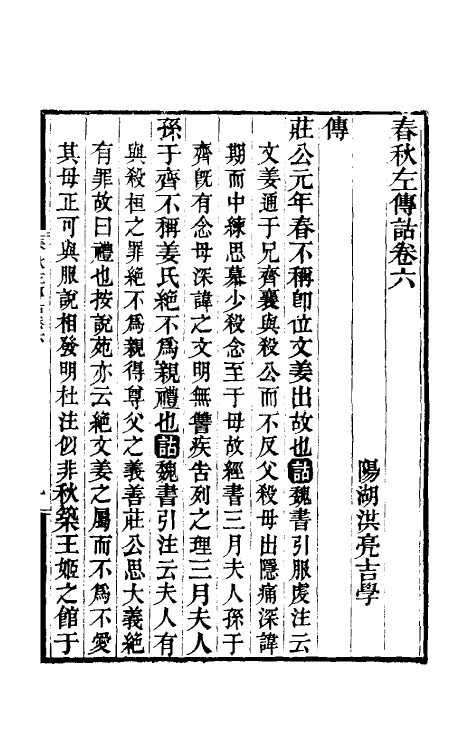 春秋左傳詁卷六
陽湖洪亮吉學
傳
莊公元年春不稱卽位文姜出故也詁魏書引服虔注云
文姜通于兄齊襄與殺公而不反父殺母出隱痛深諱
期而中練思慕少殺念至于母故經書三月夫人孫于
齊旣有念母深諱之文明無讐疾告列之理三月夫人
孫于齊不稱姜氏絕不爲親禮也詁魏書引注云夫人有
與殺桓之罪絕不爲親得尊父之義善莊公思大義絕
有罪故曰禮也按說苑亦云絕文姜之屬而不爲不愛
其母正可與服說相發明杜注似非秋築王姬之館于